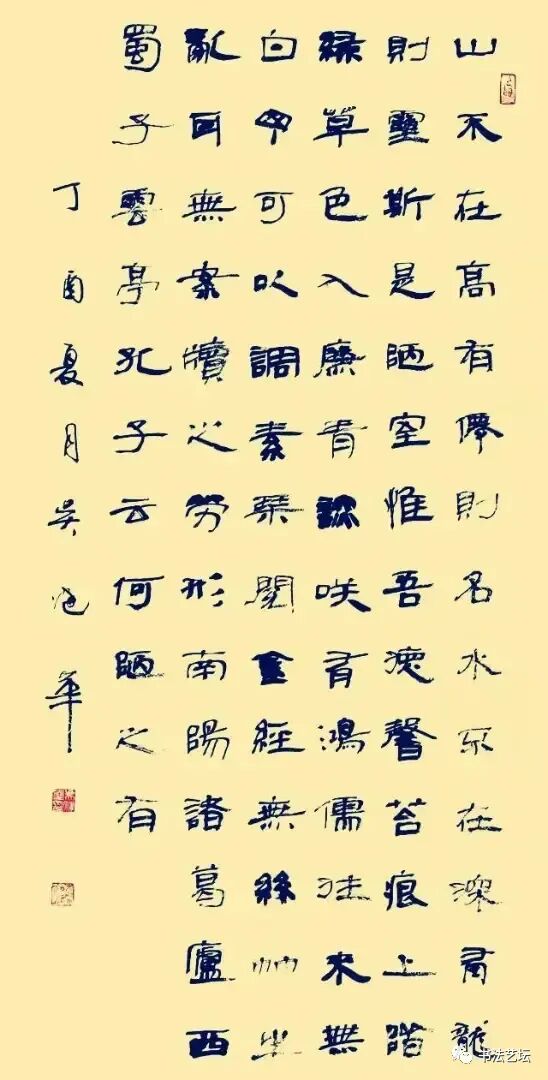 山不在高有僊則名水不在深有龍
則靈斯是陋室惟吾德馨苔痕上階
綠草色入廉青談咲有鴻儒往來無
白丁可以調素琴閱金經無絲竹之
亂耳無案牘之勞形南陽諸葛廬西
蜀子雲亭孔子云何陋之有
丁酉夏月吴華
书法艺坛